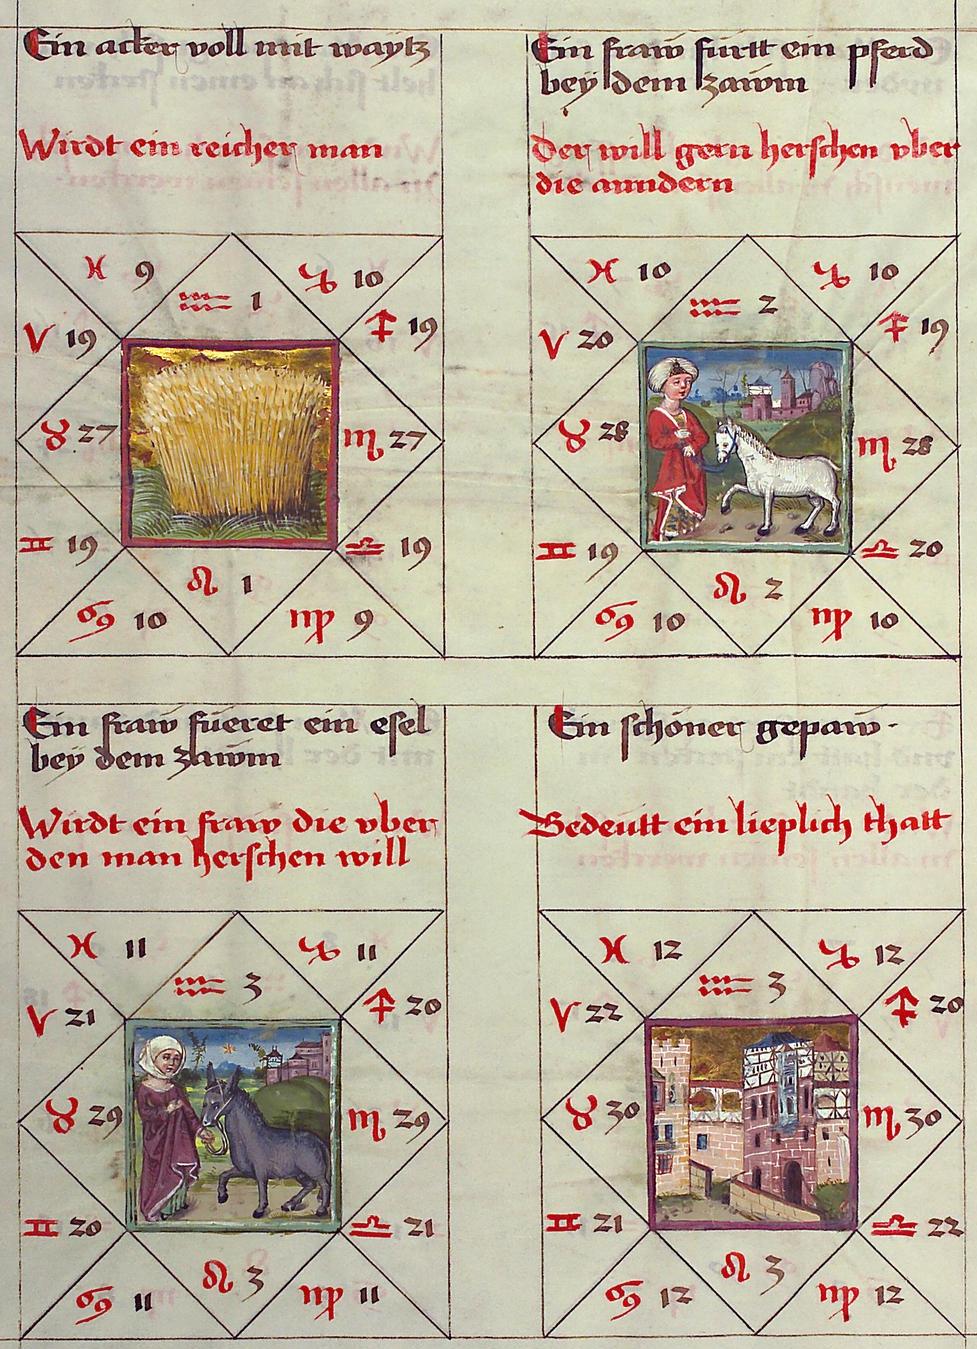 Ein acker voll mit waytz
Wirdt ein reicher man
♓ 9
♒ 1
♑ 10
♈ 19
♐ 19
♉ 27
♏ 27
♊ 19
♎ 19
♋ 10
♌ 1
♍ 9
Ein fraw fürtt ein pferd
beÿ dem zawm
Der will gern herschen vber
die anndern
♓ 10
♒ 2
♑ 10
♈ 20
♐ 19
♉ 28
♏ 28
♊ 19
♎ 20
♋ 10
♌ 2
♍ 10
Ein fraw fueret ein esel
beÿ dem zawm
Wirdt ein fraw die vber
den man herschen will
♓ 11
♒ 3
♑ 11
♈ 21
♐ 20
♉ 29
♏ 29
♊ 20
♎ 21
♋ 11
♌ 3
♍ 11
Ein schöner gepaw.
Bedeütt ein lieplich thatt
♓ 12
♒ 3
♑ 12
♈ 22
♐ 20
♉ 30
♏ 30
♊ 21
♎ 22
♋ 12
♌ 3
♍ 12